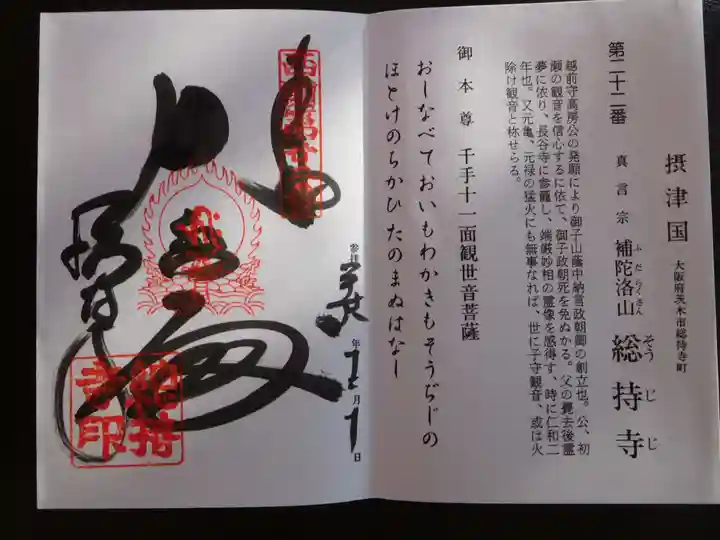 摂津国 大阪府茨木市総持寺町
第二十二番 真言宗 補陀洛山 総持寺
ふだらくさん
そうじじ
越前守高房公の発願により御子山蔭中納言政朝卿の創立也。公、初
瀬の観音を信心するに依て、御子政朝死を免ぬかる。父の薨去後霊
夢に依り、長谷寺に参籠し、端厳妙相の霊像を感得す、時に仁和二
年也。又元亀、元禄の猛火にも無事なれば、世に子守観音、或は火
除け観音と称せらる。
御本尊 千手十一面観世音菩薩
おしなべておいもわかきもそうぢじの
ほとけのちかひたのまぬはなし
参拝 年12月1日
総持
寺印